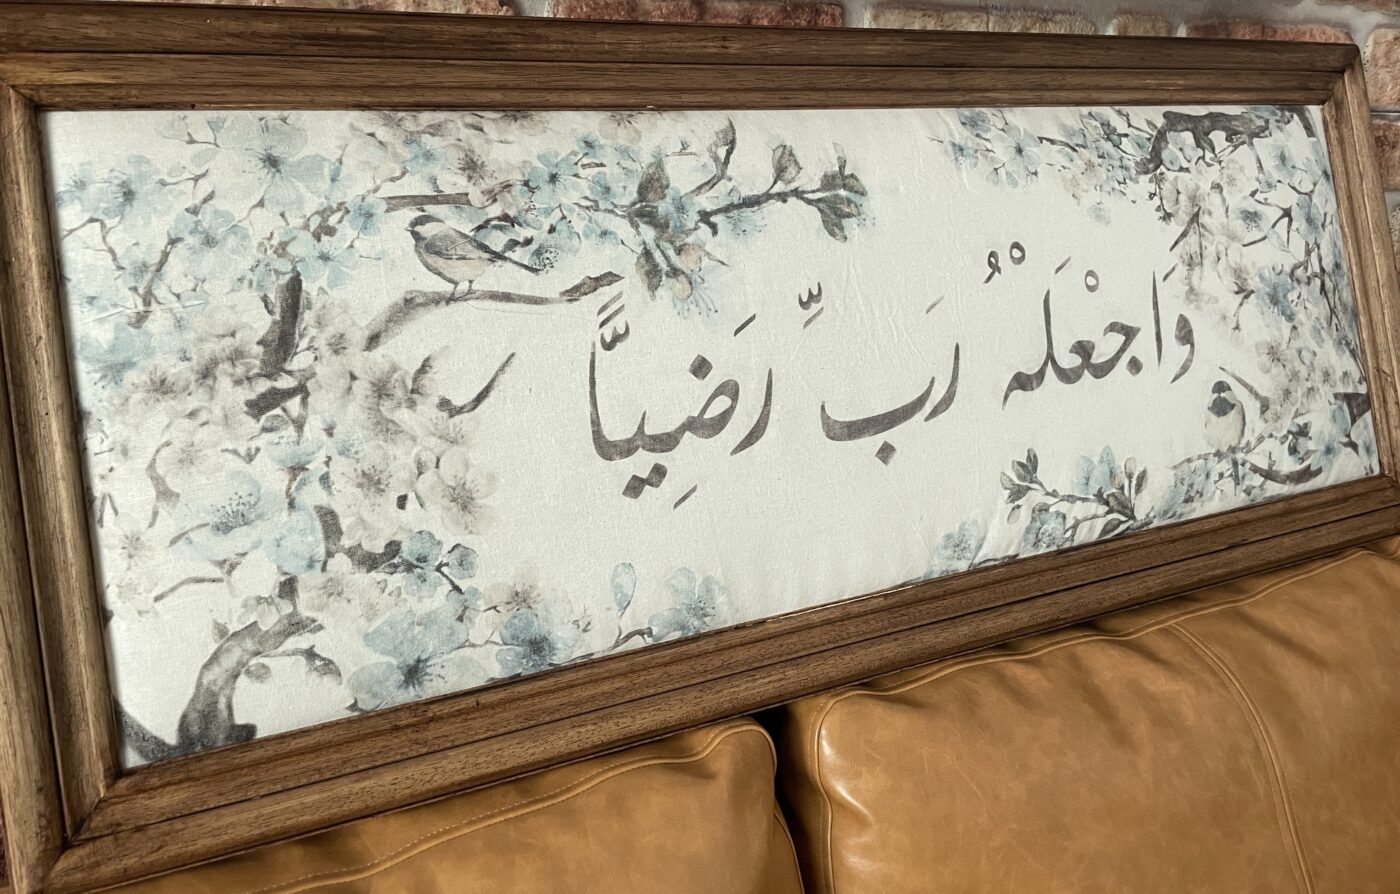 وَاجْعَلْهُ رَبِّ رَضِيًّا